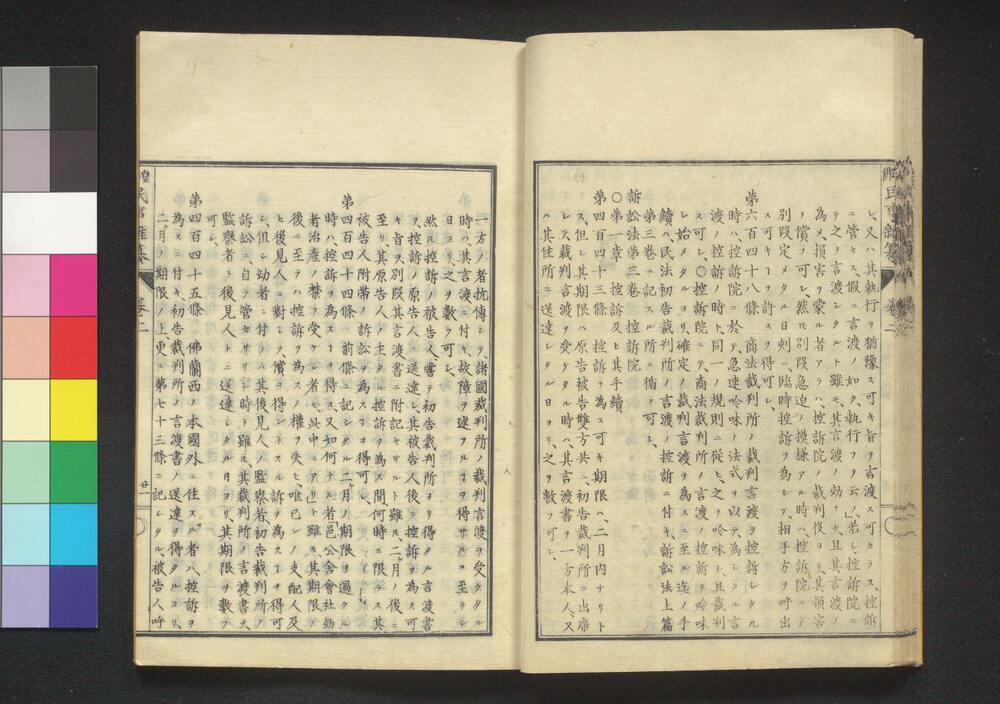 シ、又ハ其執行ヲ猶豫ス可キ旨ヲ言渡ス可カラス、控訴
ニ管セス、假ニ言渡ノ如ク執行フヲ云、若シ控訴院ニ
テ之ヲ言渡シタルト雖モ、其言渡ノ効ナク且其言渡ノ
為メ損害ヲ蒙ル者アラハ控訴院ノ裁判役ヨリ其損害
ヲ償フ可シ、然モ別段急迫ノ模様アル時ハ、控訴院ニテ
別段定メタル日刻ニ、臨時控訴ヲ為シテ、相手方ヲ呼出
ス可キヿヲ許スヲ得可シ、
第六百四十八條 商法裁判所ノ裁判言渡ヲ控訴シタル
時ハ、控訴院ニ於テ急速吟味ノ法式ヲ以テ、為シタル言
渡ノ控訴ノ時ト、同一ノ規則ニ從ヒ、之ヲ吟味シ且裁判
ス可シ、〇控訴院ニテ、商法裁判所ノ言渡ノ控訴ヲ吟味
シ始メタルヨリ、確定ノ裁判言渡ヲ為スニ至ル迄ノ手
續ハ、民法初告裁判所ノ言渡ノ控訴ニ付キ、訴訟法上篇
第三巻ニ記スル所ニ循フ可シ、
訴訟法第三巻 控訴院
〇第一章 控訴及ヒ其手續
第四百四十三條 控訴ヲ為ス可キ期限ハ、二月内ナリト
ス、但シ其期限ハ原告被告雙方共ニ、初告裁判所ニ出席
シテ、裁判言渡ヲ受ケタル時ハ、其言渡書ヲ一方本人又
ハ其住所ニ送達シタル日ヨリ、之ヲ數フ可シ、
一方ノ者抗傳シテ、諸國裁判所ノ裁判言渡ヲ受ケタル
時ハ、其言渡ニ付キ、故障ヲ述フルヿヲ得サルニ至リシ
日ヨリ、之ヲ數フ可シ、
然モ控訴ノ被告人、嘗テ初告裁判所ヨリ得タル言渡書
ヲ、控訴ノ原告人ニ送達シ、其被告人後ニ控訴ヲ為ス可
キ旨ヲ、別段其言渡書ニ附記セサルト雖モ、二ケ月ノ後ニ
至リ、其原告人ノ主タル控訴ヲ為ス間、何時ニ限ラス其
被告人附帯ノ訴訟ヲ為スヿヲ得可シ、
第四百四十四條 前條ニ記シタル二ケ月ノ期限ヲ過クル
時ハ、控訴ヲ為スヿヲ得ス、又如何ナル者邑公舎會社幼
者治産ノ禁ヲ受ケシ者モ、此中ニアリト雖モ、其期限ノ
後ニ至テハ、控訴ヲ為スノ權ヲ失ヒ、唯己レノ支配人及
ヒ後見人ニ對シテ、償ヲ得ントスル訴ヲ為スヿヲ得可
シ、但シ幼者ニ付テハ其後見人ノ監察者初告裁判所ノ
訴訟ニ、自ラ管セサリシ時ト雖モ、其裁判所ノ言渡書ヲ、
監察者ト後見人トニ送達シタル日ヨリ、其期限ヲ數フ
可シ、
第四百四十五條 佛蘭西ノ本國外ニ住スル者ハ、控訴ヲ
為スニ付キ、初告裁判所ノ言渡書ノ送達ヲ得タルヨリ、
二ケ月ノ期限ノ上更ニ第七十三條ニ記シタル、被告人呼
民事
卷二
廿一